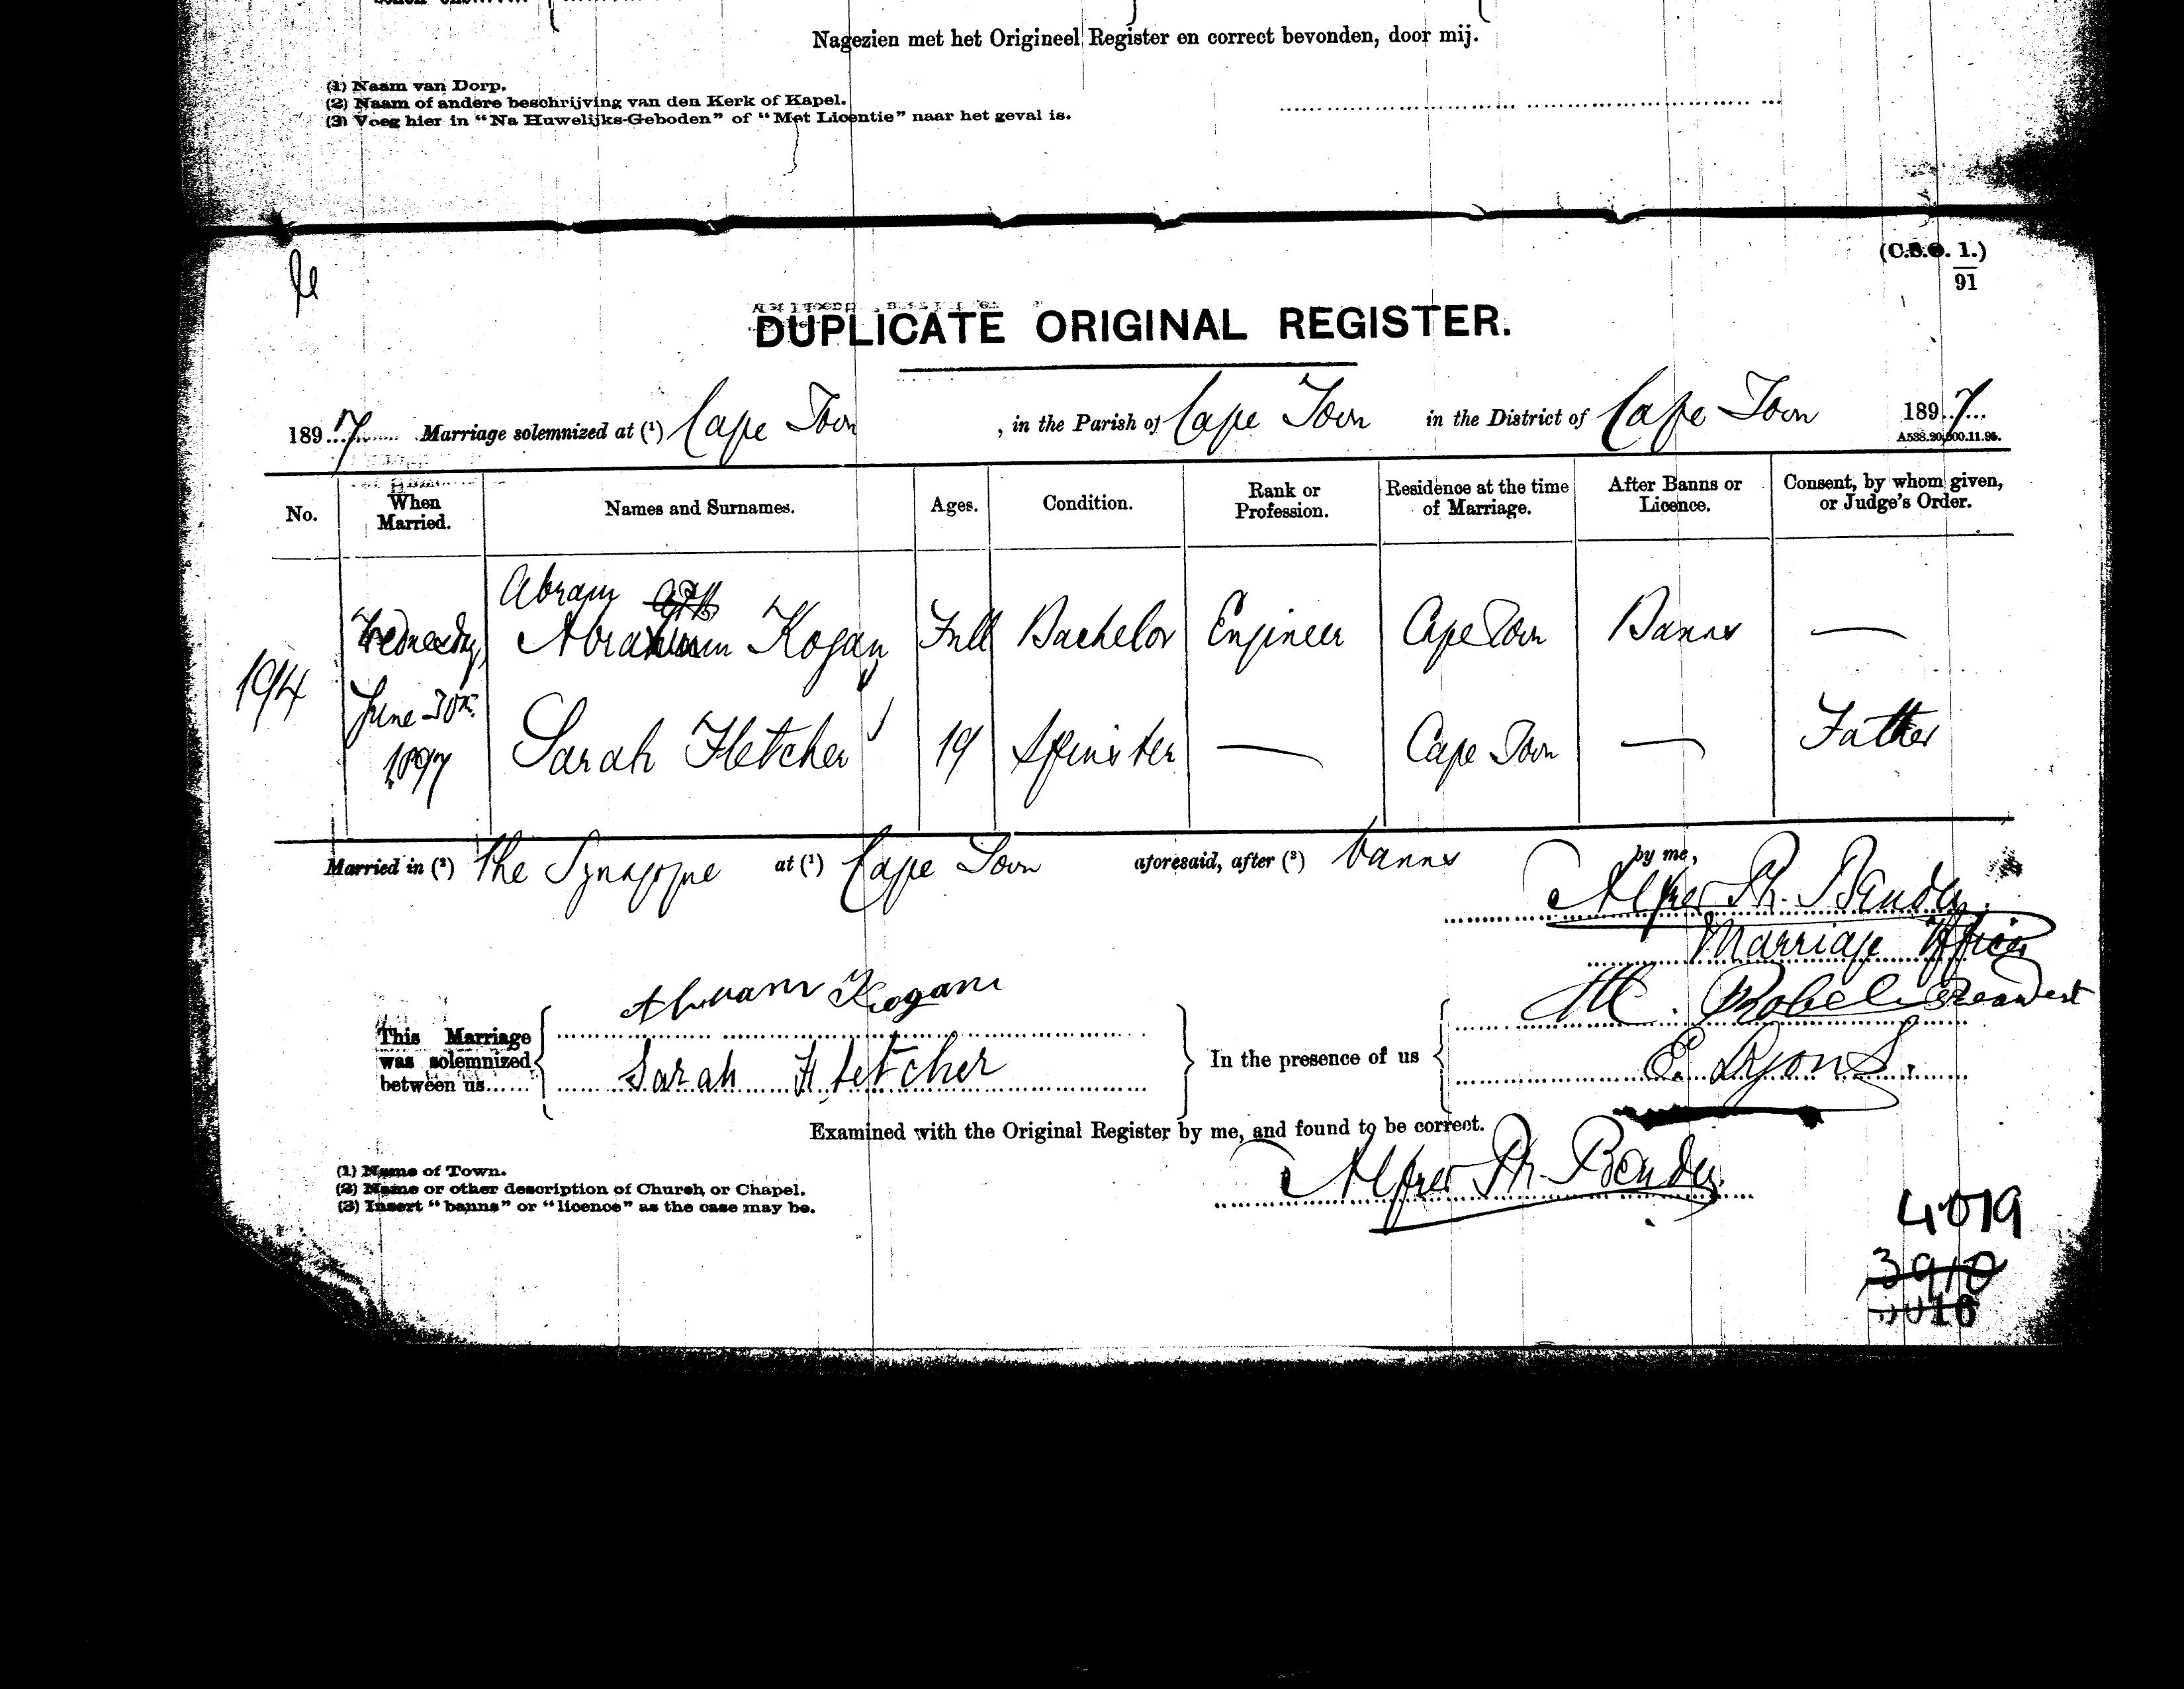 Nagezien met het Origineel Register en correct bevonden, door mij.
(1) Naam van Dorp.
(2) Naam of andere beschrijving van den Kerk of Kapel.
(3) Voeg hier in "Na Huwelijks-Geboden" of "Met Licentie" naar het geval is.
(C.S.O. 1.)
91
DUPLICATE ORIGINAL REGISTER.
1897 Marriage solemnized at (1) Cape Town, in the Parish of Cape Town in the District of Cape Town 1897
A538.20,000.11.95.
No. When Married. Names and Surnames. Ages. Condition. Rank or Profession. Residence at the time of Marriage. After Banns or Licence. Consent, by whom given, or Judge's Order.
Abram
194 Wednesday, Abraham Kogan Full Bachelor Engineer Cape Town Banns —
June 30th 1897 Sarah Fletcher 19 Spinster — Cape Town — Father
Married in (2) the Synagogue at (1) Cape Town aforesaid, after (3) banns by me,
Alfred Ph. Bender
Marriage Officer
This Marriage was solemnized between us
Abram Kogan
Sarah Fletcher
In the presence of us
M.
E. Lyons.
Examined with the Original Register by me, and found to be correct.
Alfred Ph. Bender
(1) Name of Town.
(2) Name or other description of Church or Chapel.
(3) Insert "banns" or "licence" as the case may be.
4019
3910